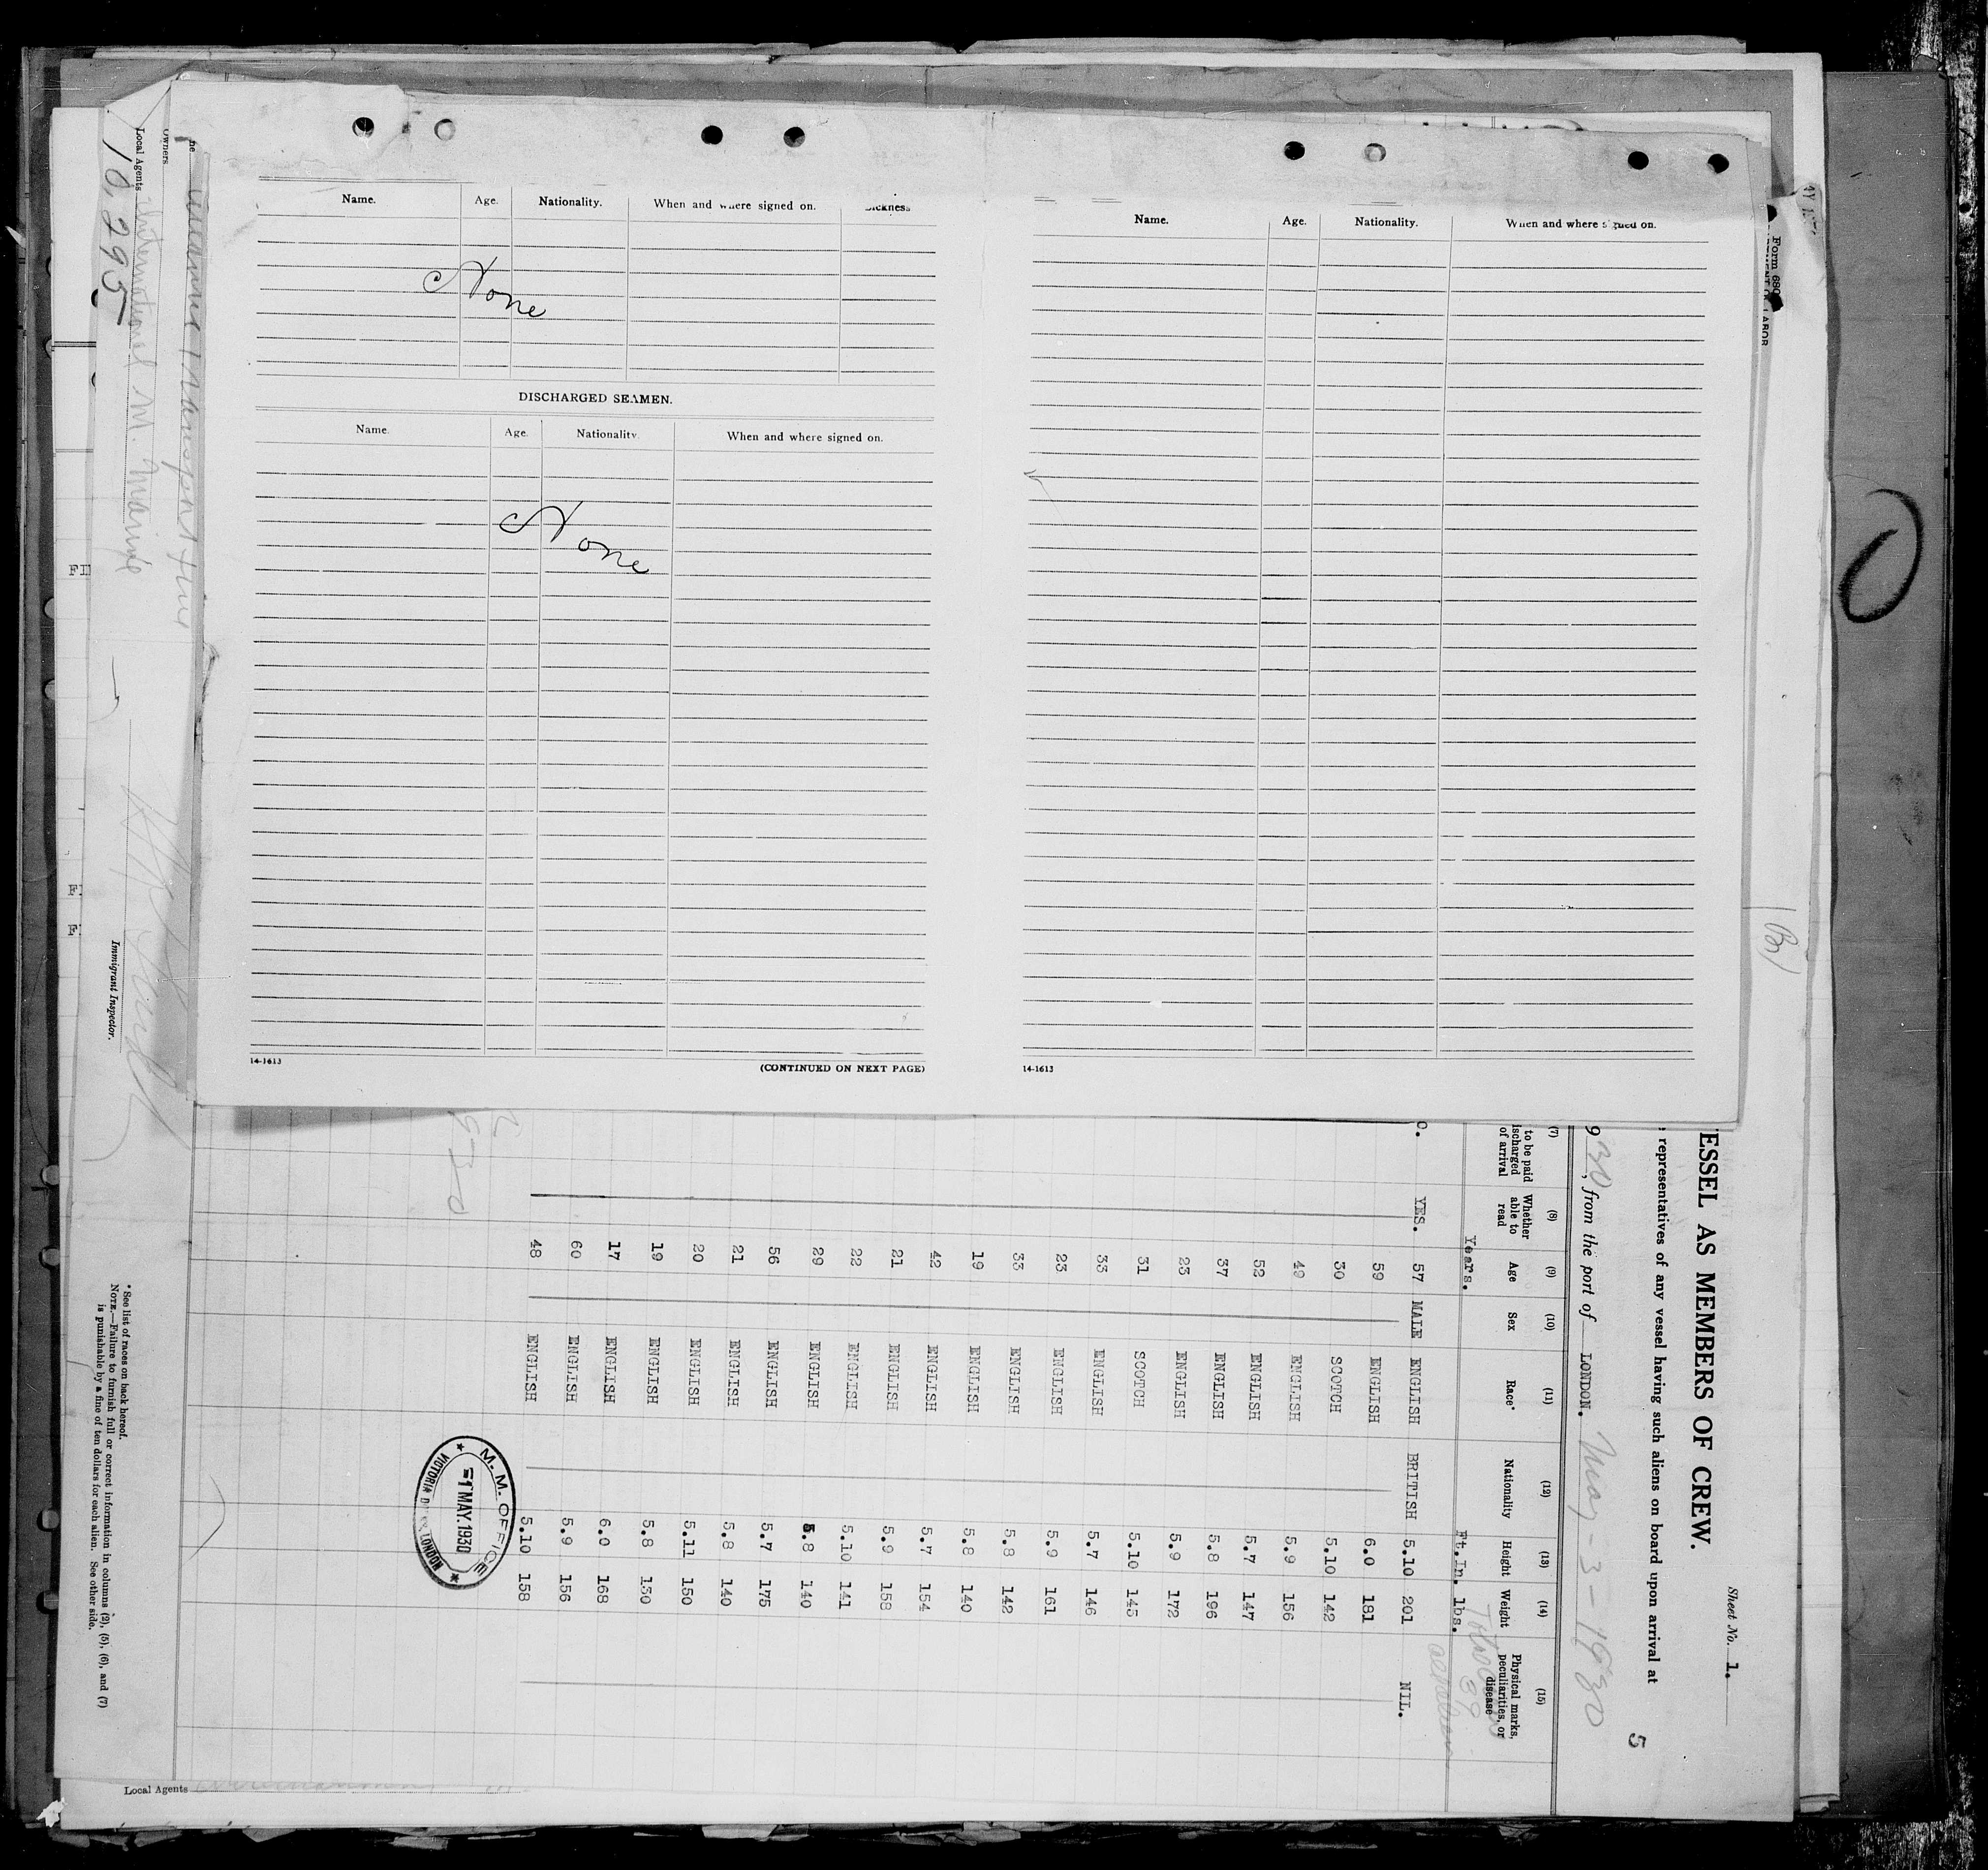 Name. Age. Nationality. When and where signed on. Sickness
None
DISCHARGED SEAMEN.
Name. Age. Nationality. When and where signed on.
None
14-1613 (CONTINUED ON NEXT PAGE)
Name. Age. Nationality. When and where signed on.
14-1613
Form 680
LABOR
(Br)
O
Owners
Local Agents International M. Marine
10,295
Immigrant Inspector.
FI
F
F
Sheet No. 1.
5
ESSEL AS MEMBERS OF CREW.
representatives of any vessel having such aliens on board upon arrival at
9 30, from the port of LONDON. May - 3 - 1930
(7) (8) (9) (10) (11) (12) (13) (14) (15)
to be paid
ischarged
of arrival
Whether able to read
Age
Sex
Race*
Nationality
Height
Weight
Physical marks, peculiarities, or disease
Years. Ft.In. lbs.
O. YES. 57 MALE ENGLISH BRITISH 5.10 201 NIL.
59 ENGLISH 6.0 181
30 SCOTCH 5.10 142
49 ENGLISH 5.9 156
52 ENGLISH 5.7 147
37 ENGLISH 5.8 196
23 ENGLISH 5.9 172
31 SCOTCH 5.10 145
33 ENGLISH 5.7 146
23 ENGLISH 5.9 161
33 ENGLISH 5.8 142
19 ENGLISH 5.8 140
42 ENGLISH 5.7 154
21 ENGLISH 5.9 158
22 ENGLISH 5.10 141
29 ENGLISH 5.8 140
56 ENGLISH 5.7 175
21 ENGLISH 5.8 140
20 ENGLISH 5.11 150
19 ENGLISH 5.8 130
17 ENGLISH 6.0 168
60 ENGLISH 5.9 156
48 ENGLISH 5.10 158
M. M. OFFICE
1 MAY. 1930
VICTORIA DOCKS, LONDON
* See list of races on back hereof.
NOTE.—Failure to furnish full or correct information in columns (2), (5), (6), and (7)
is punishable by a fine of ten dollars for each alien. See other side.
Local Agents